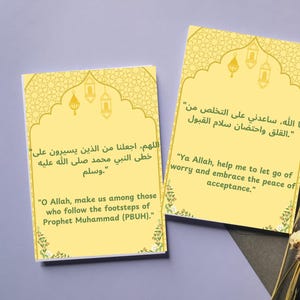 اللهم، اجعلنا من الذين يسيرون على"
خطى النبي محمد صلى الله عليه
وسلم."
"O Allah, make us among those
who follow the footsteps of
Prophet Muhammad (PBUH)."
ا الله، ساعدني على التخلص من"
القلق واحتضان سلام القبول."
"Ya Allah, help me to let go of
worry and embrace the peace of
acceptance."